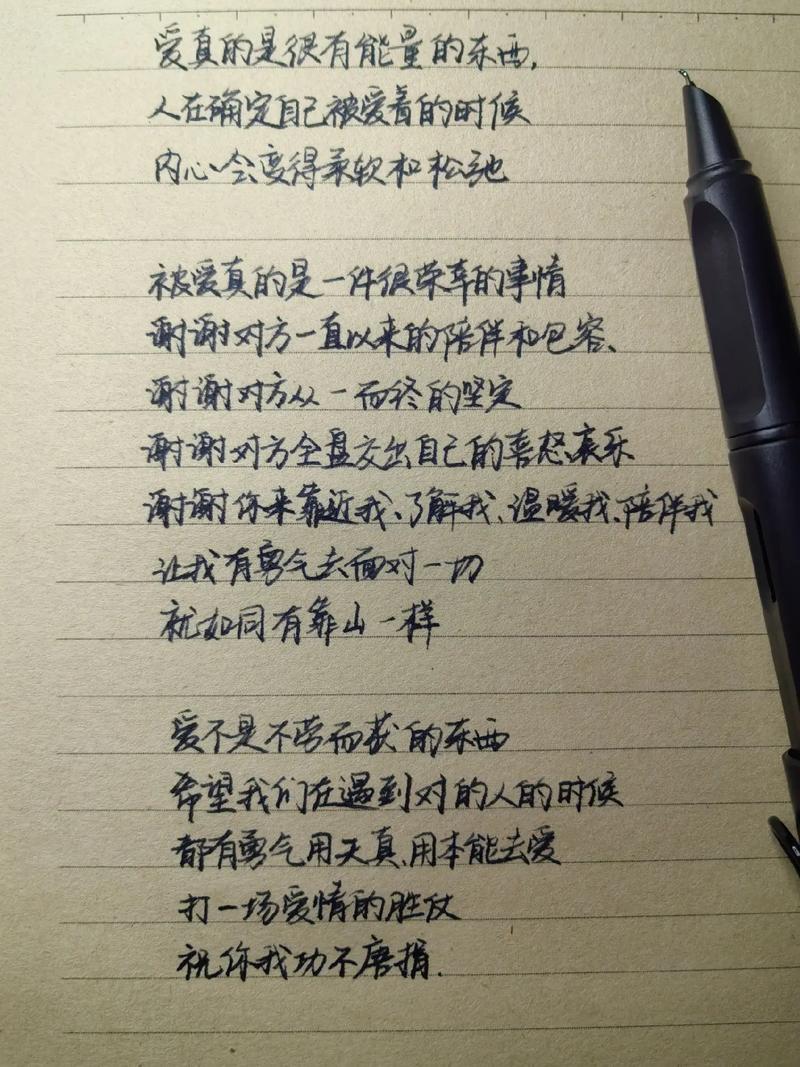 爱真的是很有能量的东西,
人在确定自己被爱着的时候
内心会变得柔软和松弛
被爱真的是一件很荣幸的事情
谢谢对方一直以来的陪伴和包容、
谢谢对方从一而终的坚定
谢谢对方全盘交出自己的喜怒哀乐
谢谢你来靠近我、了解我、温暖我、陪伴我
让我有勇气去面对一切
就如同有靠山一样
爱不是不劳而获的东西
希望我们在遇到对的人的时候
都有勇气用天真、用本能去爱
打一场爱情的胜仗
祝你我功不唐捐.